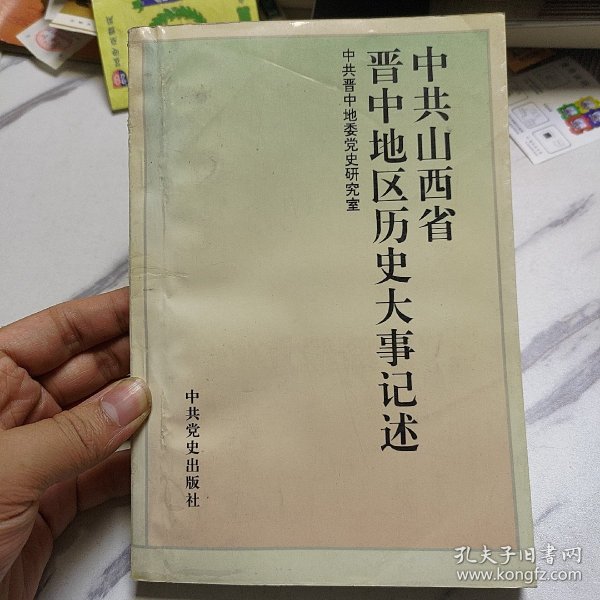 中共山西省
晋中地区历史大事记述
中共晋中地委党史研究室
中共党史出版社
孔夫子旧书网
www.kongfz.com